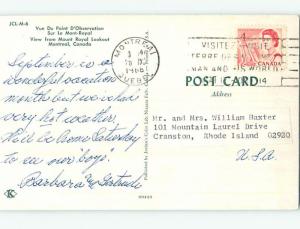 JCL-M-6
Vue Du Point D'Observation
Sur Le Mont-Royal
View from Mount Royal Lookout
Montreal, Canada
MONTREAL
QUEBEC
VISITEZ
MAN AND HIS WORLD
POST CARD
Address
September is a
wonderful vacation
month but we had
very hot weather.
We'll be home Saturday
to see our "boys".
Barbara & Gertrude
Mr. and Mrs. William Baxter
101 Mountain Laurel Drive
Cranston, Rhode Island 02920
U.S.A.
K